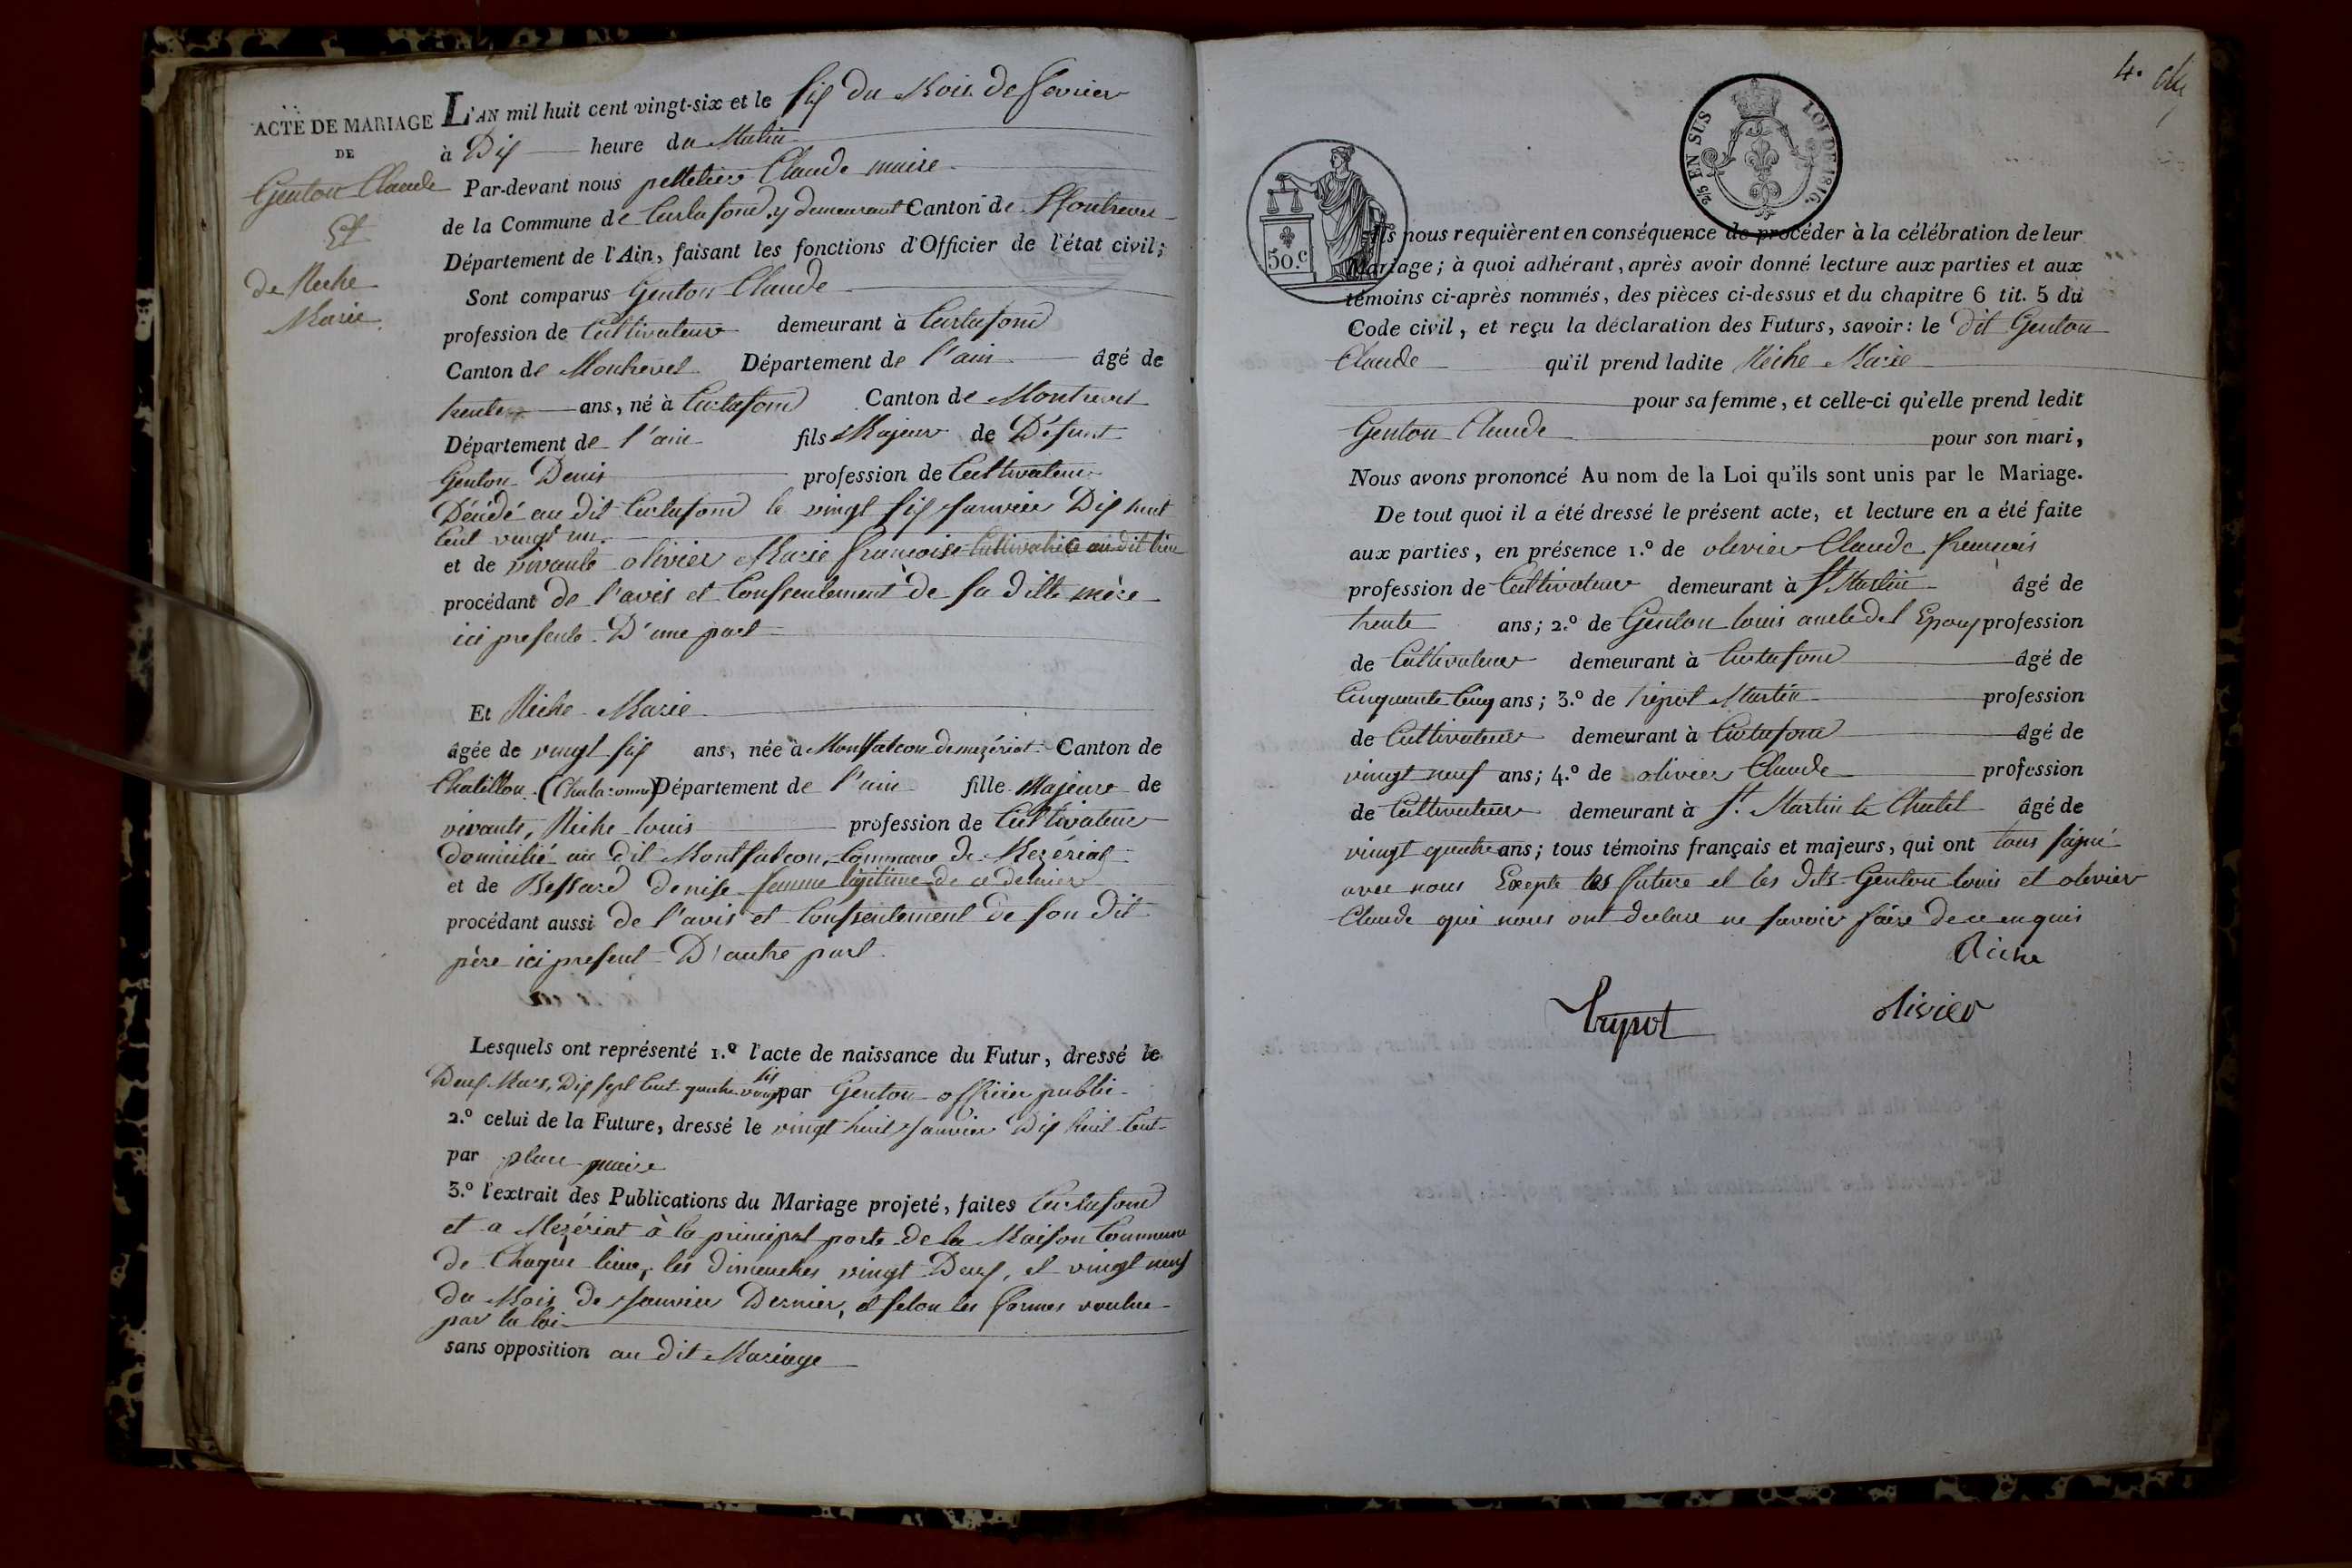 ACTE DE MARIAGE
DE
Genton Claude
Et
de Riche
Marie
L'AN mil huit cent vingt-six et le six du Mois de fevrier
à Dix heure du Matin
Par-devant nous pelletier Claude maire
de la Commune de Curtafond, y demeurant Canton de Montrevel
Département de l'Ain, faisant les fonctions d'Officier de l'état civil;
Sont comparus Genton Claude
profession de Cultivateur demeurant à Curtafond
Canton de Montrevel Département de l'ain âgé de
trente ans, né à Curtafond Canton de Montrevel
Département de l'ain fils Majeur de Défunt
Genton Denis profession de Cultivateur
Décédé au dit Curtafond le vingt six janvier Dix huit
Cent vingt un.
et de vivante olivier Marie françoise Cultivatrice au dit lieu
procédant de l'avis et Consentement de sa ditte mère
ici presente D'une part
Et Riche Marie
âgée de vingt six ans, née à Montfalcon de mezériat Canton de
Chatillon (Chalaronne) Département de l'ain fille Majeure de
vivants, Riche louis profession de Cultivateur
domicilié au dit Montfalcon, Commune de Mezériat
et de Bessard denise femme légitime de ce dernier
procédant aussi de l'avis et Consentement de son dit
père ici present D'autre part
Lesquels ont représenté 1.º l'acte de naissance du Futur, dressé le
Deux Mars, Dix sept Cent quatre vingt six par Genton officier public
2.º celui de la Future, dressé le vingt huit janvier Dix huit Cent
par maire
3.º l'extrait des Publications du Mariage projeté, faites Curtafond
et a Mezériat à la principal porte de la Maison Commune
de Chaque lieux, les dimenches vingt Deux, et vingt neuf
du Mois de janvier Dernier, et selon les formes voulue
par la loi
sans opposition au dit Mariage
4.
2/5 EN SUS LOI DE 1816.
50.c
Ils nous requièrent en conséquence de procéder à la célébration de leur
Mariage; à quoi adhérant, après avoir donné lecture aux parties et aux
témoins ci-après nommés, des pièces ci-dessus et du chapitre 6 tit. 5 du
Code civil, et reçu la déclaration des Futurs, savoir: le dit Genton
Claude qu'il prend ladite Riche Marie
pour sa femme, et celle-ci qu'elle prend ledit
Genton Claude pour son mari,
Nous avons prononcé Au nom de la Loi qu'ils sont unis par le Mariage.
De tout quoi il a été dressé le présent acte, et lecture en a été faite
aux parties, en présence 1.º de olivier Claude françois
profession de Cultivateur demeurant à St Martin âgé de
trente ans; 2.º de Genton louis oncle del Epoux profession
de Cultivateur demeurant à Curtafond âgé de
Cinquante Cinq ans; 3.º de trépot Martin profession
de Cultivateur demeurant à Curtafond âgé de
vingt neuf ans; 4.º de olivier Claude profession
de Cultivateur demeurant à St. Martin le Chatel âgé de
vingt quatre ans; tous témoins français et majeurs, qui ont tous signé
avec nous Exepte les future et les dits Genton louis et olivier
Claude qui nous ont declare ne savoir faire de ce enquis
Riche
trypot
olivier